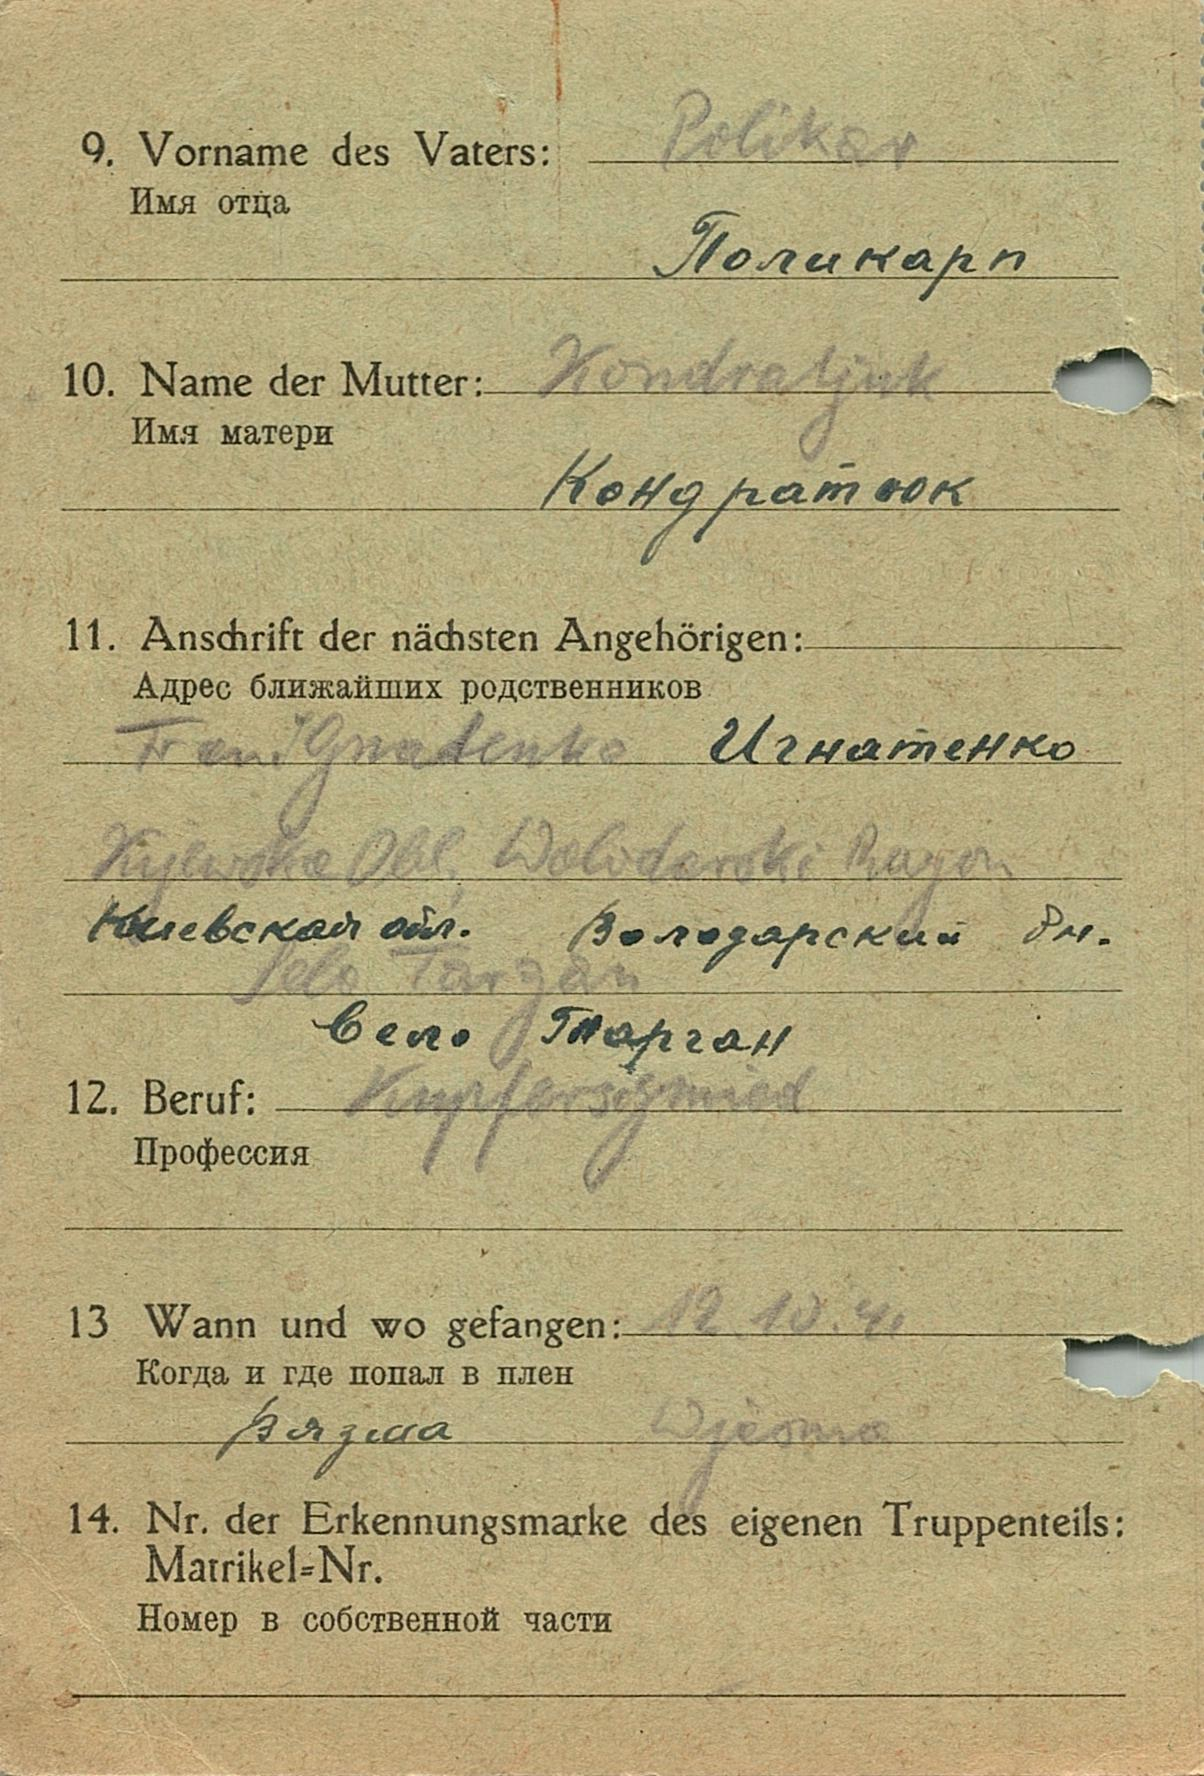 9. Vorname des Vaters: Polikar
Имя отца
Поликарп
10. Name der Mutter: Kondratjuk
Имя матери
Кондратюк
11. Anschrift der nächsten Angehörigen:
Адрес ближайших родственников
Ignatenko Игнатенко
Kijewska Obl, Wolodarski Rayon
Киевская обл. Володарский рн.
Selo Targan
Село Тарган
12. Beruf: Kupferschmied
Профессия
13 Wann und wo gefangen: 12.10.41
Когда и где попал в плен
Вязма Wjasma
14. Nr. der Erkennungsmarke des eigenen Truppenteils:
Matrikel=Nr.
Номер в собственной части